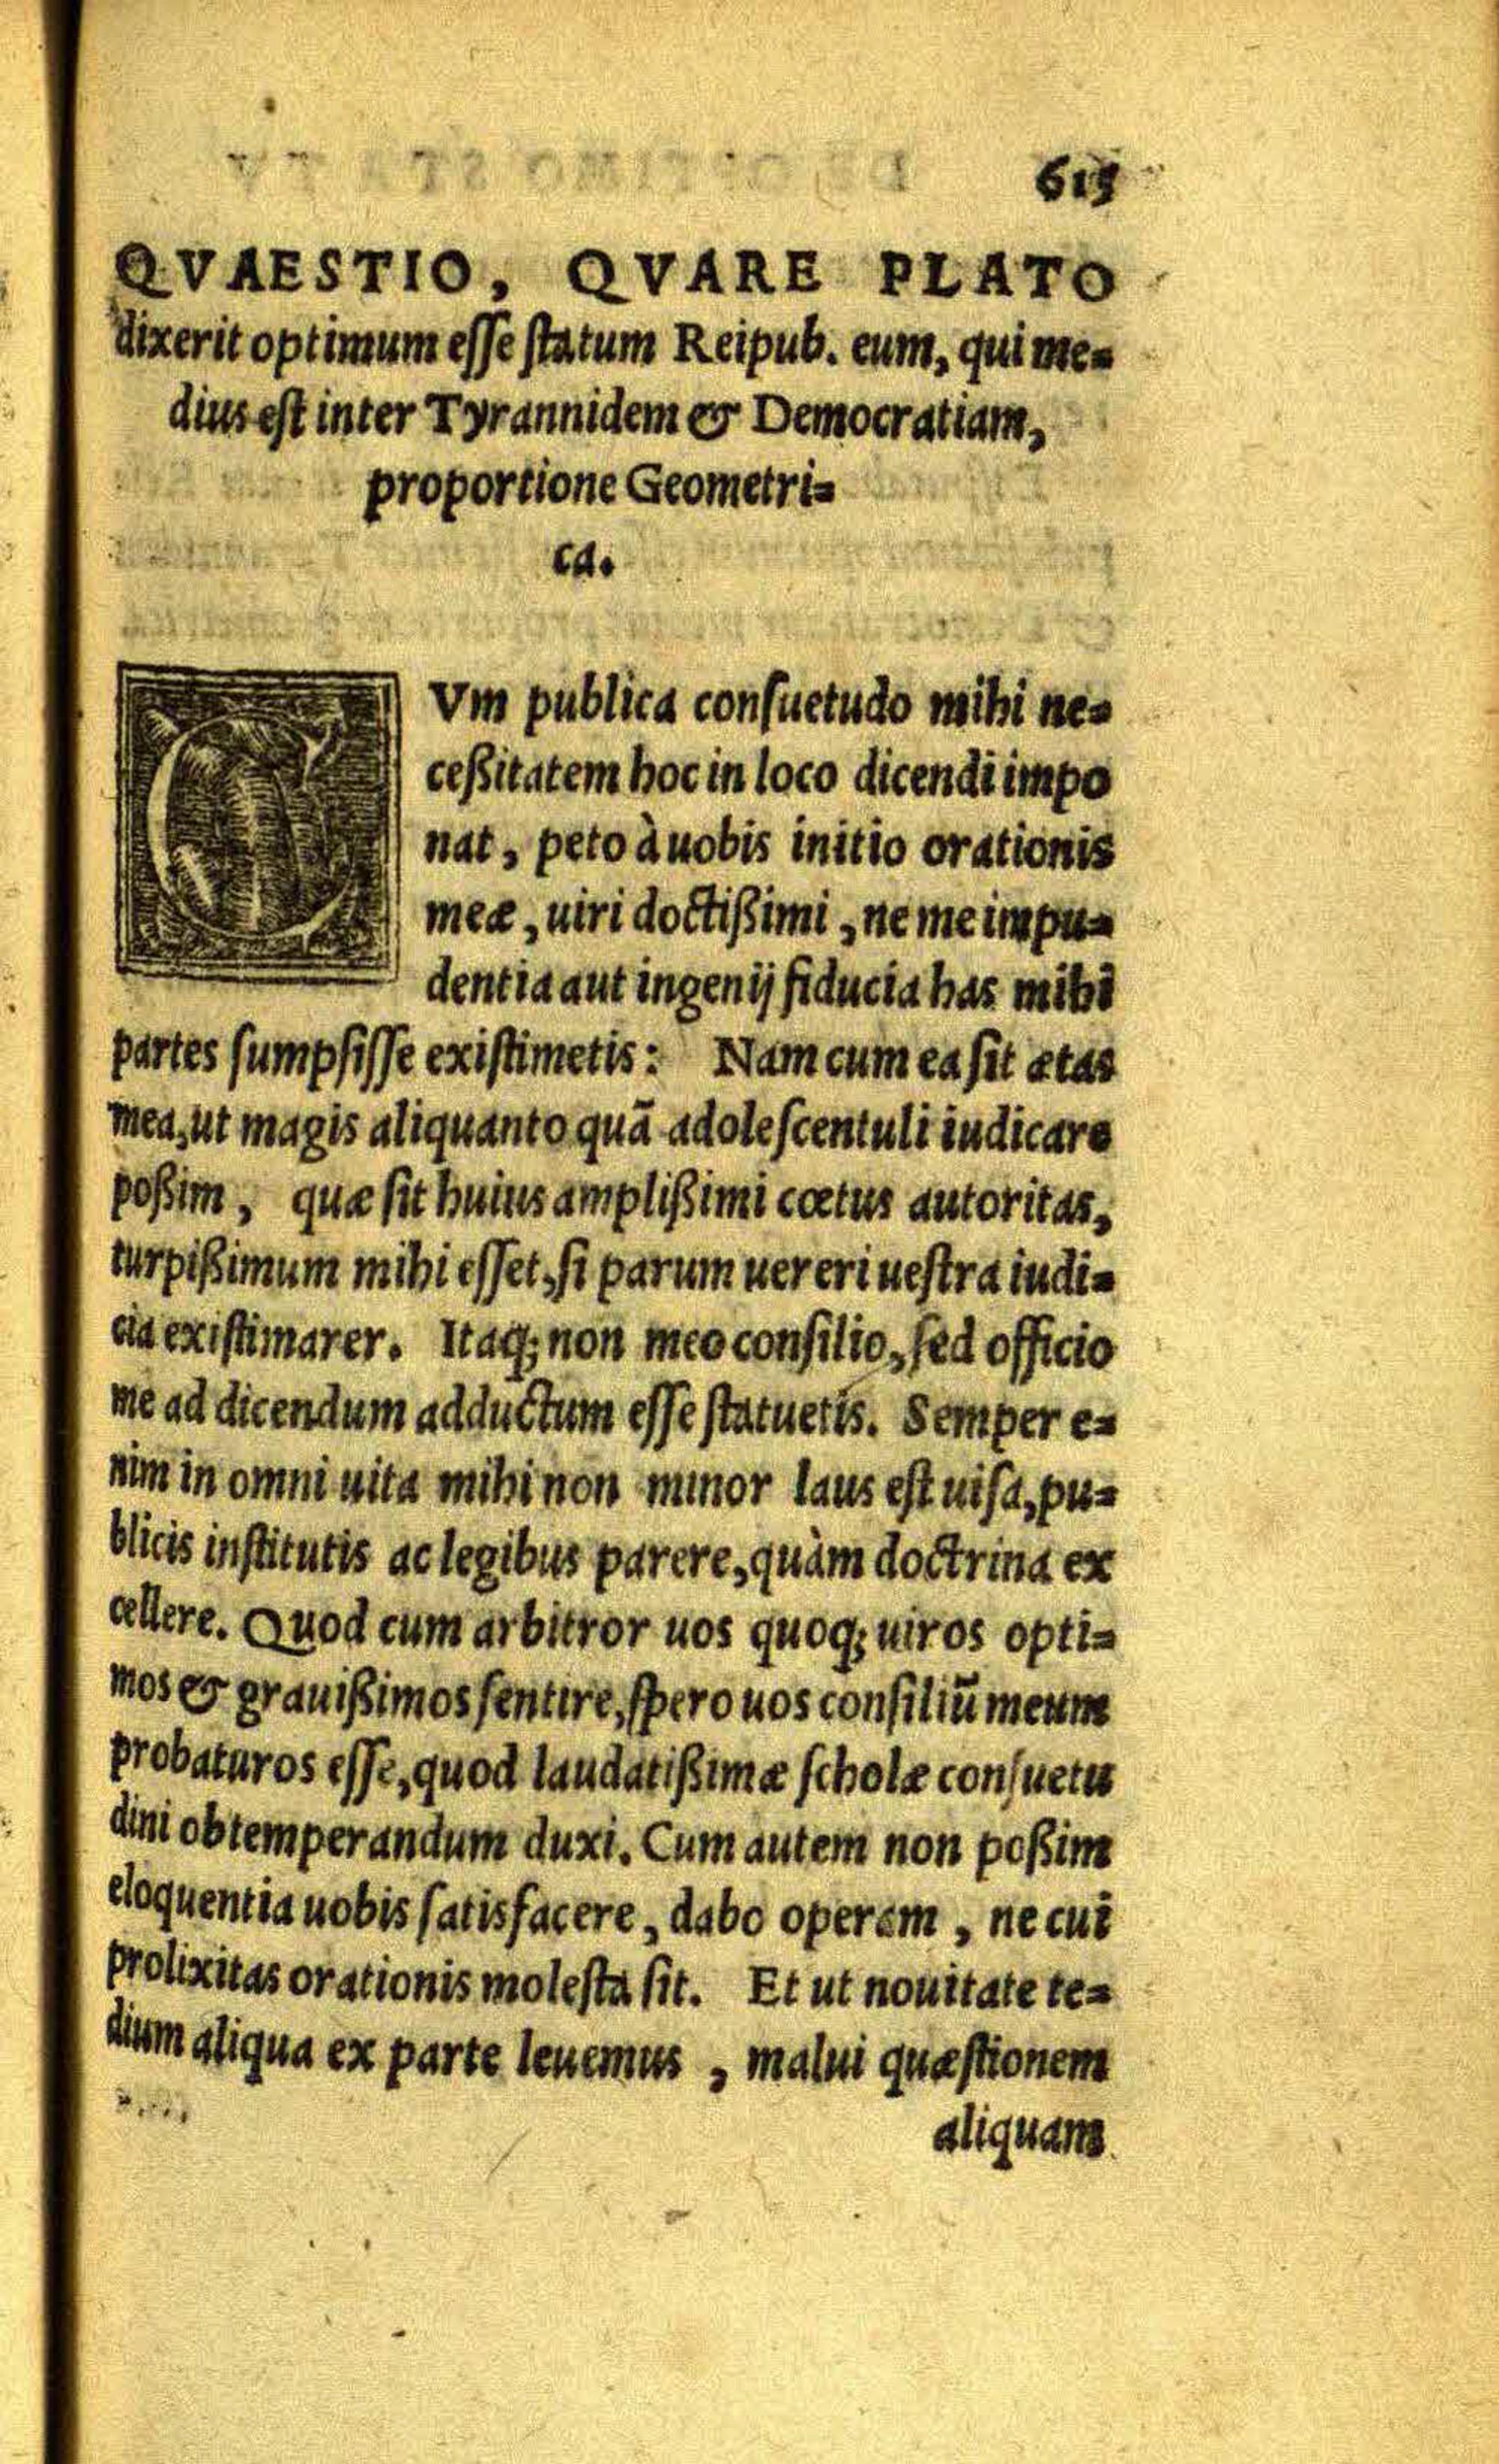 615
QVAESTIO, QVARE PLATO
dixerit optimum eſſe ſtatum Reipub. eum, qui me-
dius eſt inter Tyrannidem & Democratiam,
proportione Geometri-
ca.
CVm publica conſuetudo mihi ne-
ceßitatem hoc in loco dicendi impo
nat, peto à uobis initio orationis
meæ, uiri doctißimi, ne me impu-
dentia aut ingenij fiducia has mihi
partes ſumpſiſſe exiſtimetis: Nam cum ea ſit ætas
mea, ut magis aliquanto quã adoleſcentuli iudicare
poßim, quæ ſit huius amplißimi cœtus autoritas,
turpißimum mihi eſſet, ſi parum uereri ueſtra iudi-
cia exiſtimarer. Itaq; non meo conſilio, ſed officio
me ad dicendum adductum eſſe ſtatuetis. Semper e-
nim in omni uita mihi non minor laus eſt uiſa, pu-
blicis inſtitutis ac legibus parere, quàm doctrina ex
cellere. Quod cum arbitror uos quoq; uiros opti-
mos & grauißimos ſentire, ſpero uos conſiliũ meum
probaturos eſſe, quod laudatißimæ ſcholæ conſuetu
dini obtemperandum duxi. Cum autem non poßim
eloquentia uobis ſatisfacere, dabo operam, ne cui
prolixitas orationis moleſta ſit. Et ut nouitate te-
dium aliqua ex parte leuemus, malui quæſtionem
aliquam